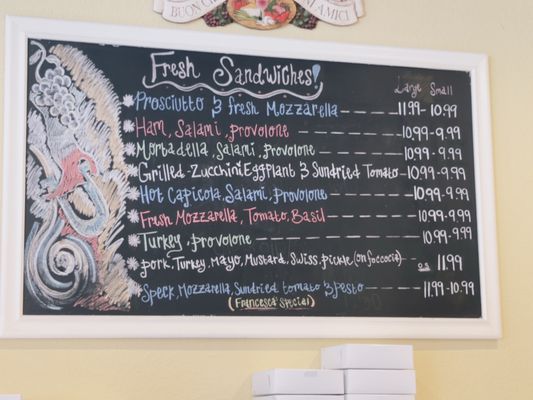 BUON
AMICI
Fresh Sandwiches!
Large Small
* Prosciutto & fresh Mozzarella 11.99- 10.99
* Ham, Salami, Provolone 10.99 - 9.99
* Mortadella, Salami, Provolone 10.99 - 9.99
* Grilled-Zucchini Eggplant & Sundried Tomato 10.99 - 9.99
* Hot Capicola, Salami, Provolone 10.99 - 9.99
* Fresh Mozzarella, Tomato, Basil 10.99 - 9.99
* Turkey, Provolone 10.99 - 9.99
* Pork, Turkey, Mayo, Mustard, Swiss, pickle (on foccocia) o.s 11.99
* Speck, Mozzarella, Sundried tomato & Pesto 11.99 - 10.99
(Francesca Special)